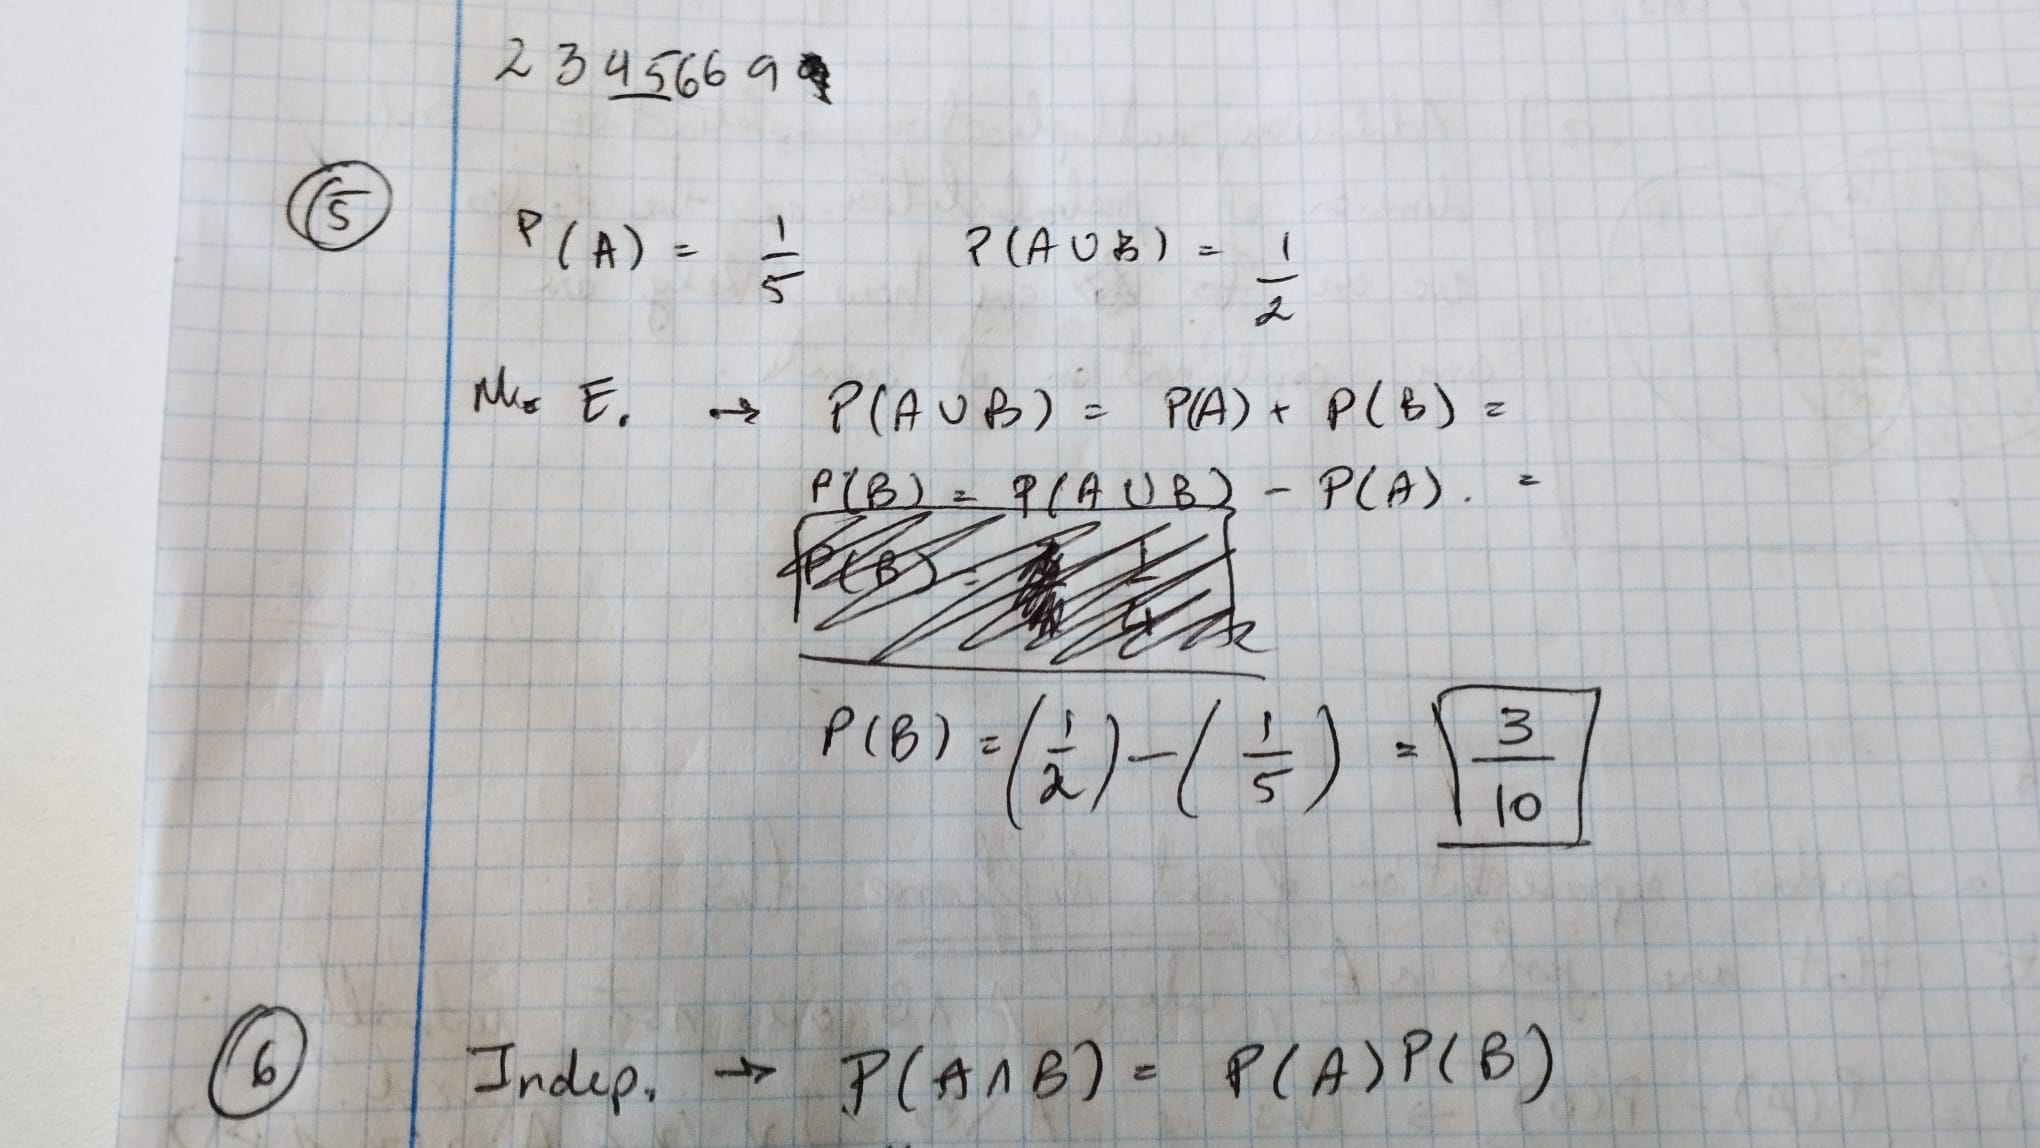 2 3 4 5 6 6 9
5
P(A) = 1/5 P(A∪B) = 1/2
E. → P(A∪B) = P(A) + P(B) =
P(B) = P(A∪B) - P(A). =
P(B) =
P(B) = (1/2) - (1/5) = 3/10
6 Indep. → P(A∩B) = P(A)P(B)